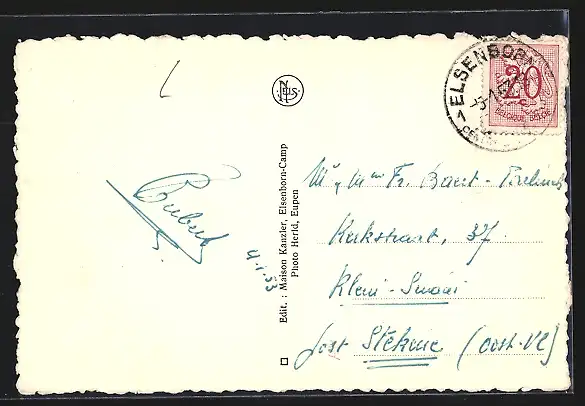 Hubert
4.1.53
NELS
Edit. : Maison Kanzler, Elsenborn-Camp
Photo Herld, Eupen
ELSENBORN
20
BELGIQUE-BELGIE
Mr, Mme Fr. Baert-
Kerkstraat, 37.
Klein-Sinaai
post Stekene (Oost-Vl)